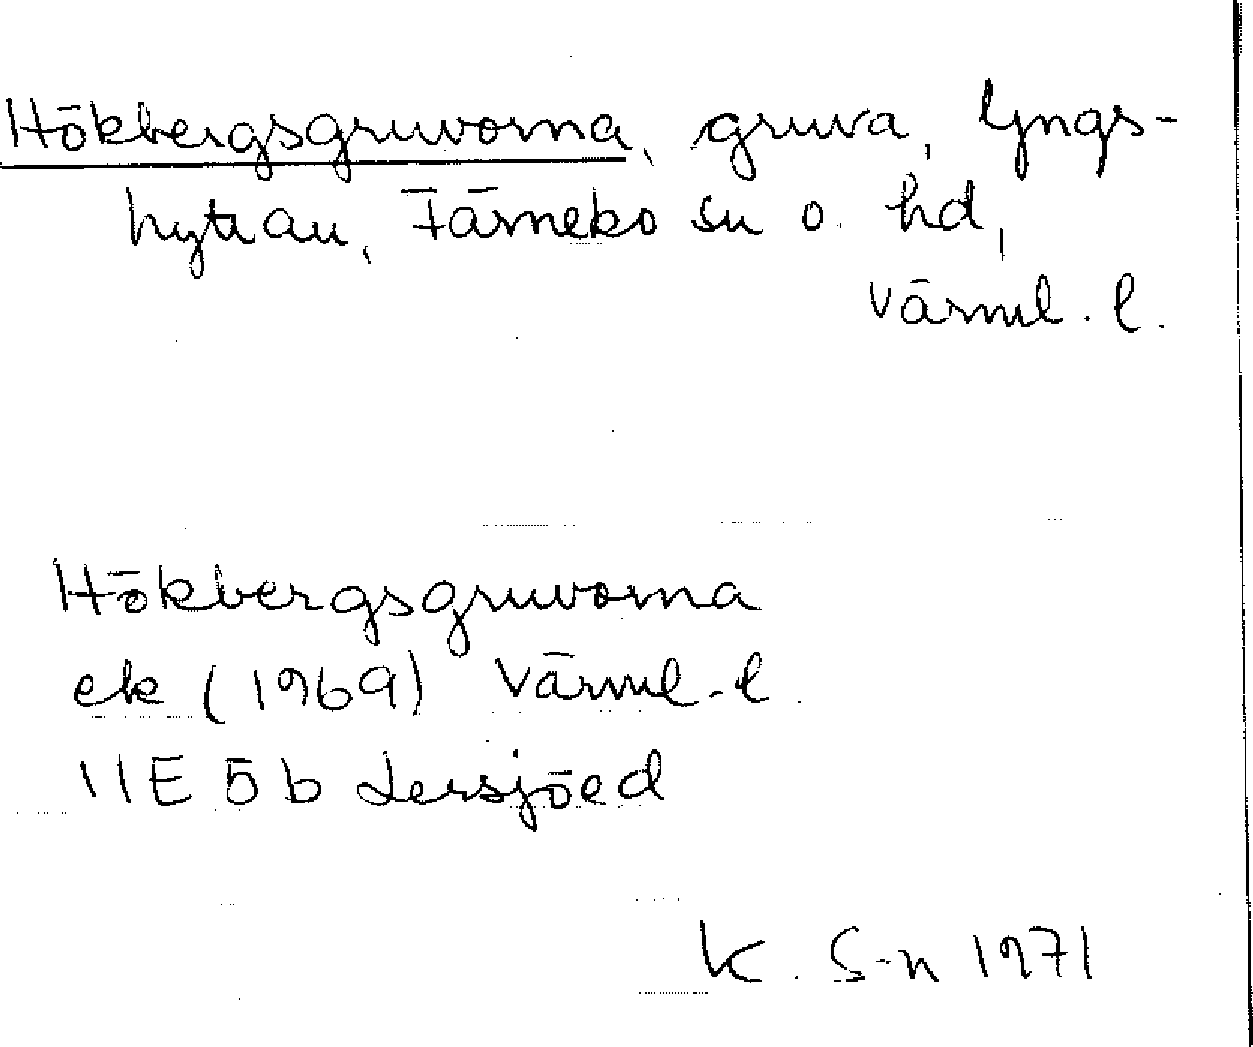 Hökbergsgruvorna, gruva, Lyngs-
hyttan, Färnebo sn o. hd,
Värml. l.
Hökbergsgruvorna
ek (1969) Värml. l
11E 5b Lersjöed
K. S-n 1971